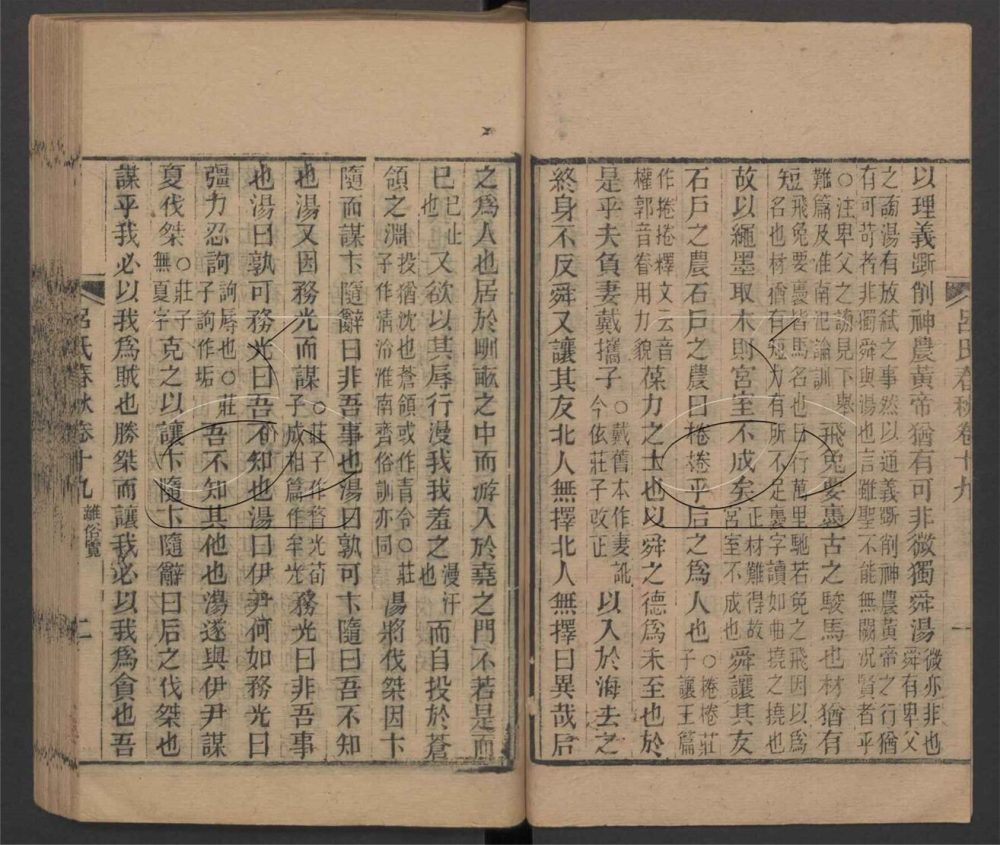 以理義斲削神農黃帝猶有可非微獨舜湯微亦非也舜有卑父
之謗湯有放弒之事然以通義斲削神農黃帝之行猶有可苛者非獨舜與湯也言雖聖不能無闕況賢者乎
○注卑父之謗見下舉難篇及淮南氾論訓飛兔要褭古之駿馬也材猶有
短飛兔要褭皆馬名也日行萬里馳若兔之飛因以爲名也材猶有短力有所不足褭字讀如曲撓之撓也
故以繩墨取木則宮室不成矣正材難得故宮室不成也舜讓其友
石戶之農石戶之農曰棬棬乎后之爲人也○棬棬莊子讓王篇
作捲捲釋文云音權郭音眷用力貌葆力之士也以舜之德爲未至也於
是乎夫負妻戴攜子○戴舊本作妻訛今依莊子改正以入於海去之
終身不反舜又讓其友北人無擇北人無擇曰異哉后
呂氏春秋卷十九
一
之爲人也居於甽畝之中而游入於堯之門不若是而
已已止也又欲以其辱行漫我我羞之漫汙也而自投於蒼
領之淵投猶沈也蒼領或作青令○莊子作淸泠淮南齊俗訓亦同湯將伐桀因卞
隨而謀卞隨辭曰非吾事也湯曰孰可卞隨曰吾不知
也湯又因務光而謀○莊子作瞀光荀子成相篇作牟光務光曰非吾事
也湯曰孰可務光曰吾不知也湯曰伊尹何如務光曰
彊力忍訽訽辱也○莊子訽作垢吾不知其他也湯遂與伊尹謀
夏伐桀○莊子無夏字克之以讓卞隨卞隨辭曰后之伐桀也
謀乎我必以我爲賊也勝桀而讓我必以我爲貪也吾
呂氏春秋卷十九 離俗覽
二